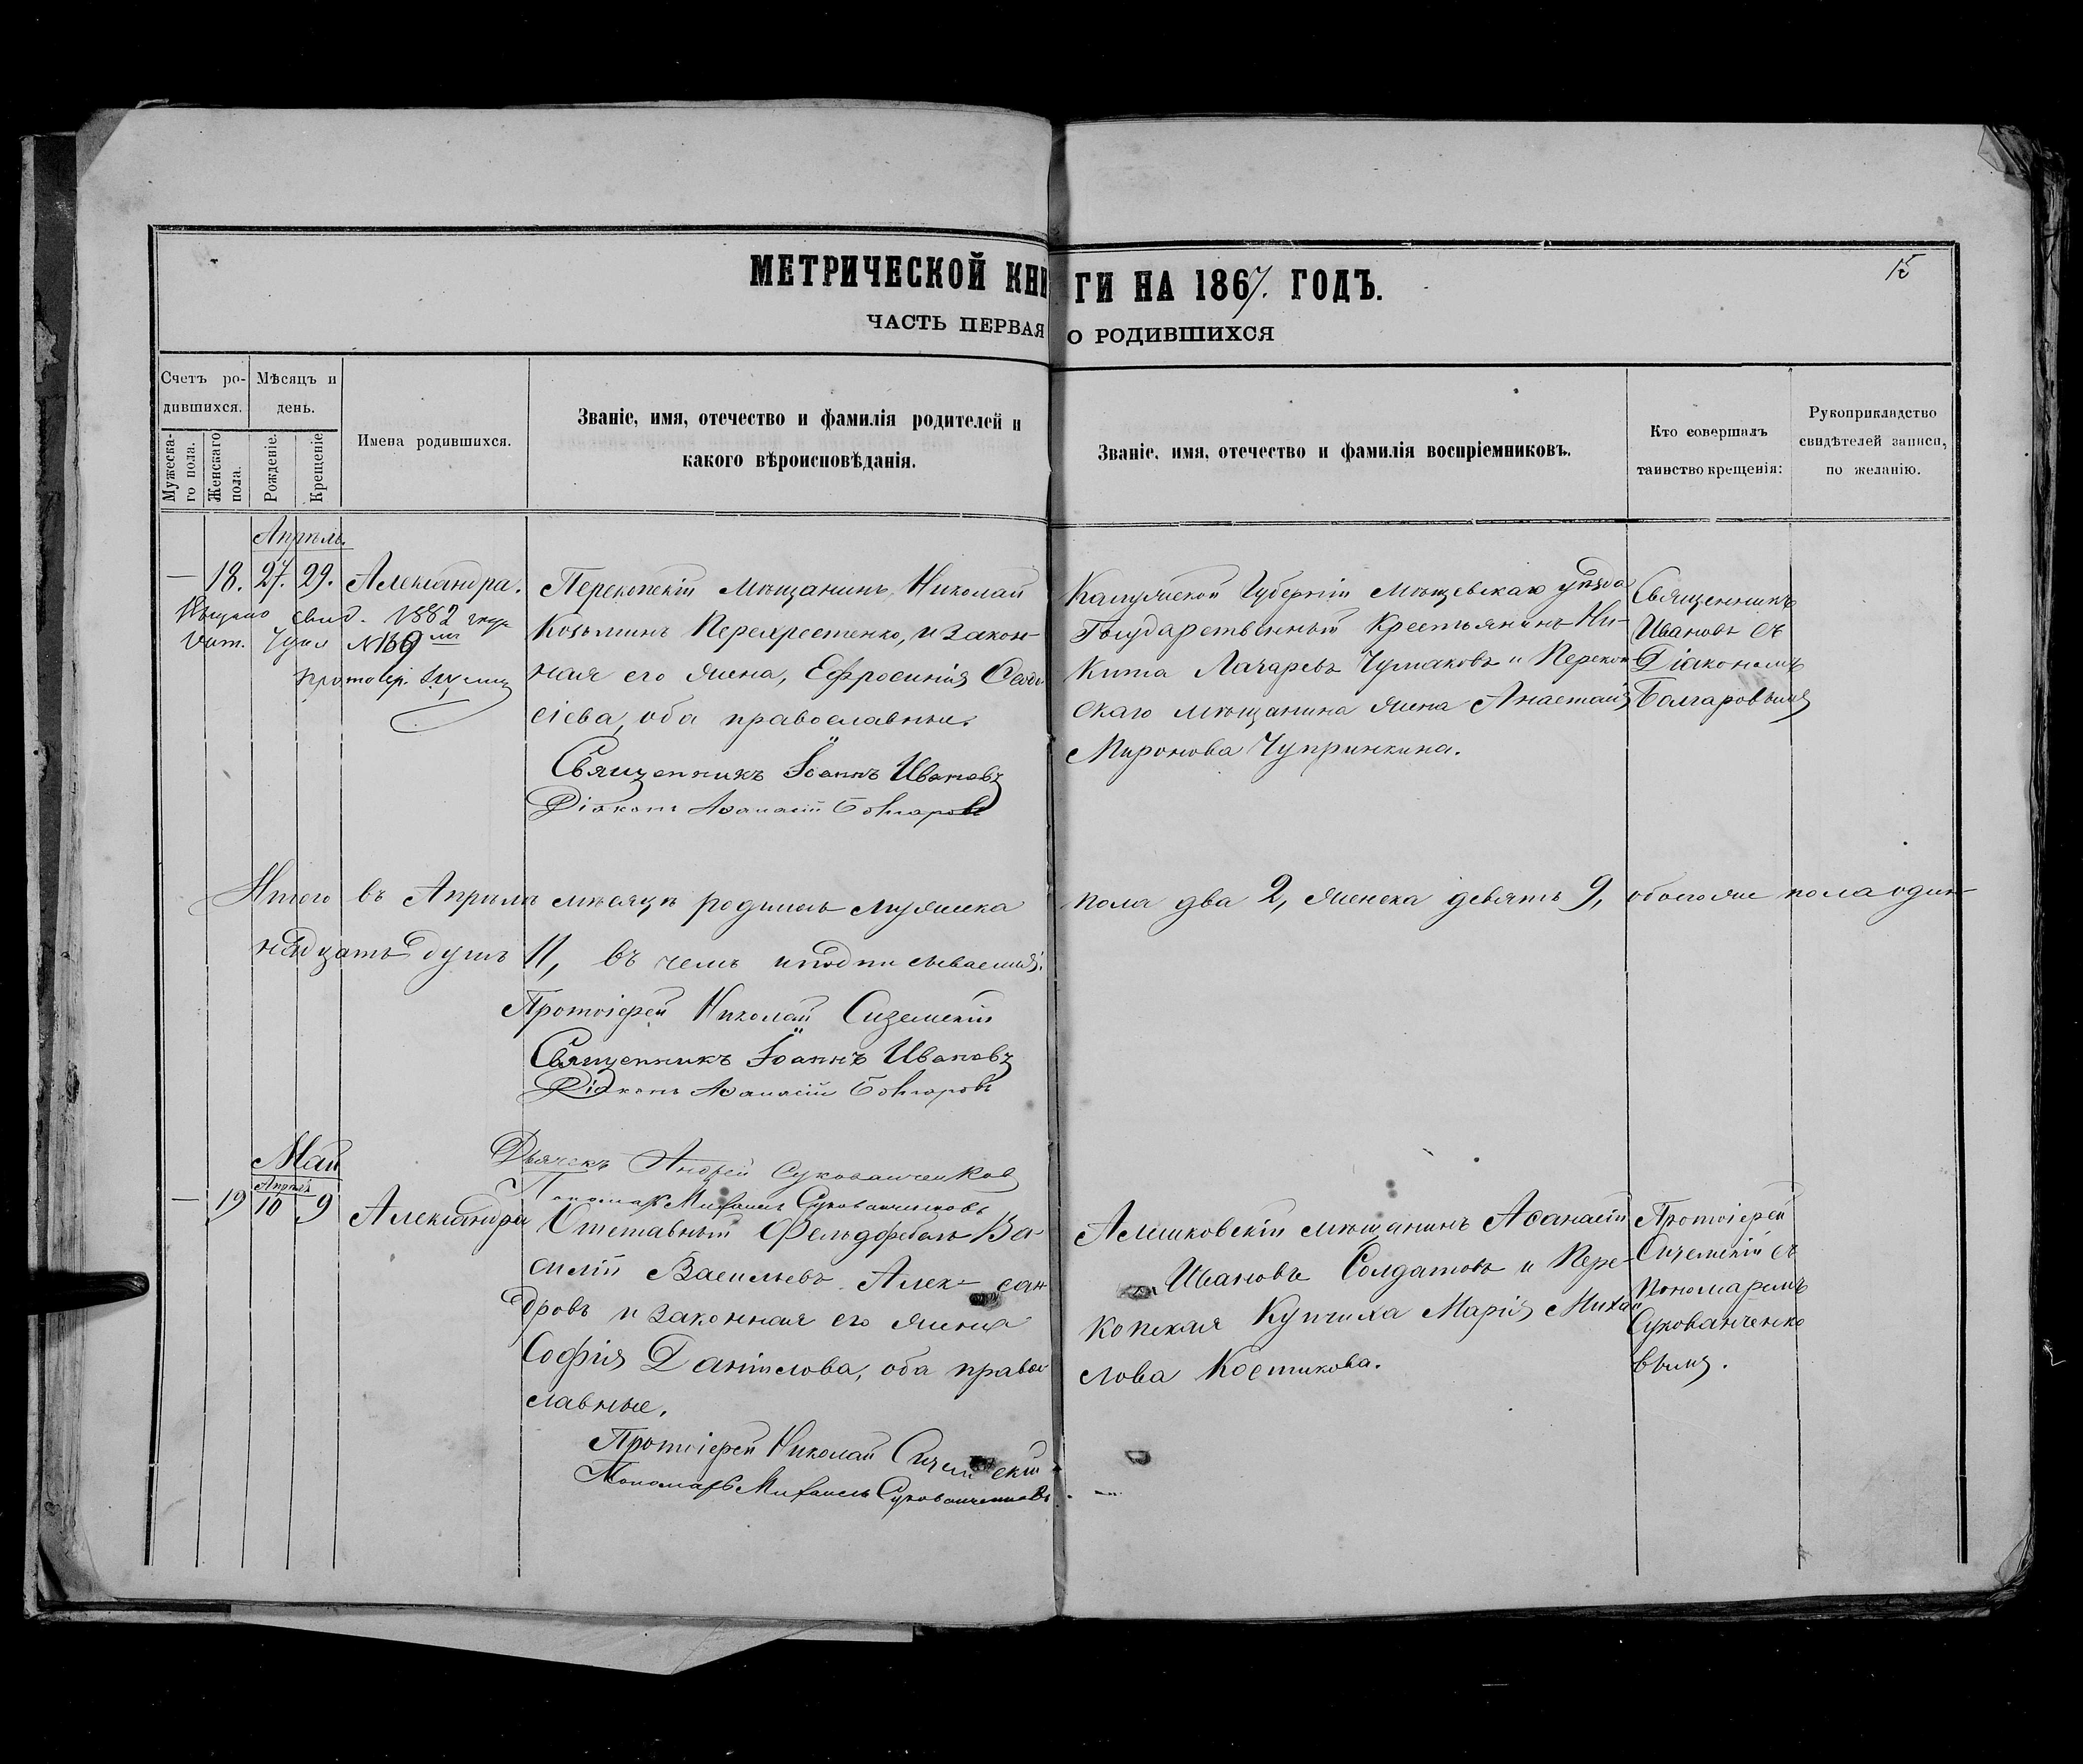 МЕТРИЧЕСКОЙ КНИГИ НА 1867. ГОДЪ.
15
ЧАСТЬ ПЕРВАЯ О РОДИВШИХСЯ
Счетъ ро-
дившихся.
Мѣсяцъ и
день.
Мужеска-
го пола.
Женскаго
пола.
Рожденіе.
Крещеніе
Имена родившихся.
Званіе, имя, отечество и фамилія родителей и
какого вѣроисповѣданія.
Званіе, имя, отечество и фамилія воспріемниковъ.
Кто совершалъ
таинство крещенія:
Рукоприкладство
свидѣтелей записи,
по желанію.
Апрѣль.
— 18. 27. 29. Александра.
Выдано свид. 1882 года
№ 139
Перекопскій мѣщанинъ Николай
Козьминъ Перехрестенко, и закон-
ная его жена, Ефросинія Ѳеодо-
сіева, оба православные.
Священникъ Іоаннъ Ивановъ
Діаконъ Аѳанасій Болгаровъ
Калужской Губерніи Мѣщевскаго уѣзда
Государственный Крестьянинъ Ни-
кита Лазаревъ Чумаковъ и Перекоп-
скаго мѣщанина жена Анастасія
Миронова Чупринкина.
Священникъ
Ивановъ съ
Діакономъ
Болгаровымъ
Итого въ Апрѣлѣ мѣсяцѣ родилось мужеска пола два 2, женска девять 9, обоего же пола один-
надцать душъ 11, въ чемъ и подписываемся.
Протоіерей Николай Сиземскій
Священникъ Іоаннъ Ивановъ
Діаконъ Аѳанасій Болгаровъ
Дьячекъ Андрей Сукованченковъ
Пономарь Михаилъ Сукованченковъ
Май
Апрѣля
— 19 10 9 Александра
Отставный Фельдфебель Ва-
силій Васильевъ Алексан-
дровъ и законная его жена
Софія Даніилова, оба право-
славные.
Протоіерей Николай Сиземскій
Пономарь Михаилъ Сукованченковъ
Алешковскій мѣщанинъ Аѳанасій
Ивановъ Солдатовъ и Пере-
копская Купчиха Марія Михаи-
лова Костикова.
Протоіерей
Сиземскій съ
Пономаремъ
Сукованченко
вымъ.